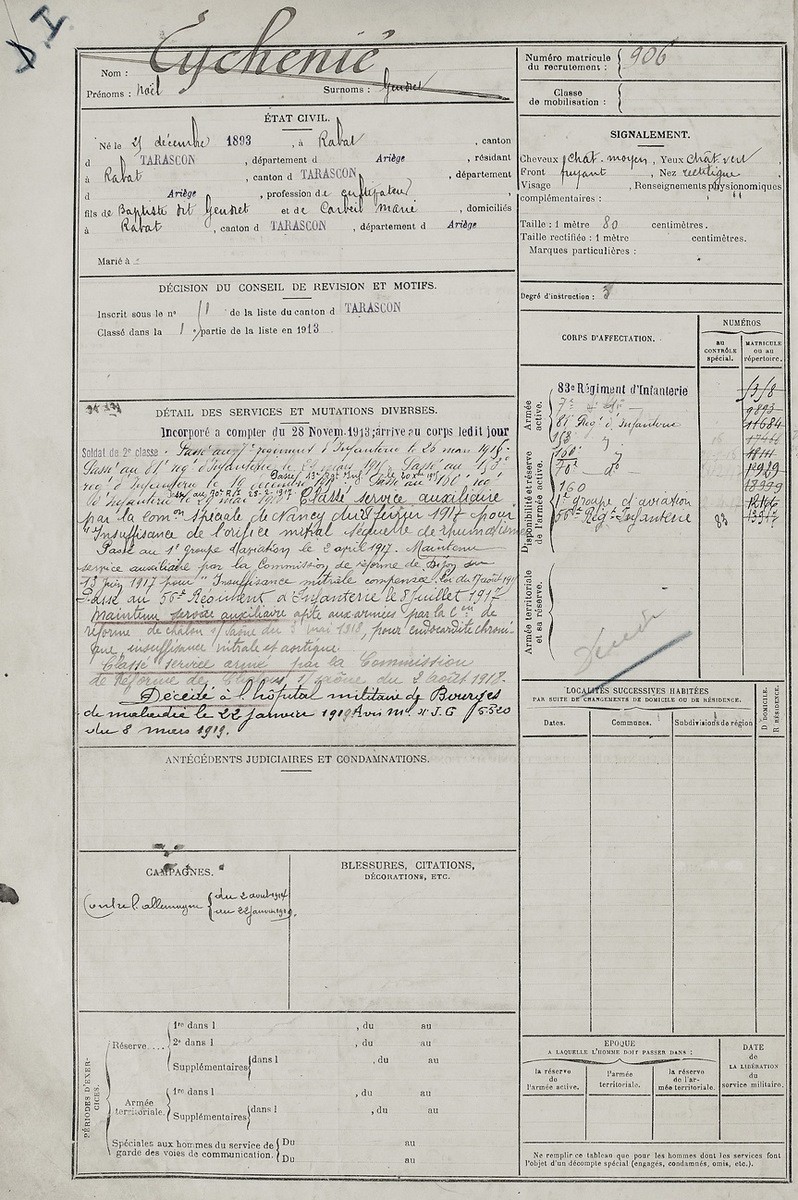 Eychenié
Nom :
Prénoms : Noël Surnoms : Gendret
ÉTAT CIVIL.
Né le 25 décembre 1893, à Rabat, canton
d TARASCON, département d Ariège, résidant
à Rabat, canton d TARASCON, département
d Ariège, profession de cultivateur
fils de Baptiste dit Gendret et de Marie, domiciliés
à Rabat, canton d TARASCON, département d Ariège
Marié à
DÉCISION DU CONSEIL DE REVISION ET MOTIFS.
Inscrit sous le nº 11 de la liste du canton d TARASCON
Classé dans la 1e partie de la liste en 1913
DÉTAIL DES SERVICES ET MUTATIONS DIVERSES.
Incorporé a compter du 28 Novem. 1913; arrivé au corps ledit jour
Soldat de 2e classe. Passé au 7e régiment d'Infanterie le 25 mars 1915.
Passé au 81e rég' d'Infanterie le mars 191 Passé au 158e
rég' d'Infanterie le 10 décembre
d'Infanterie Classé service auxiliaire
par la comon spéciale de Nancy du 8 février 1917 pour
"Insuffisance de l'orifice mitral séquelle de rhumatisme
Passé au 1e Groupe d'aviation le 2 avril 1917. Maintenu
service auxiliaire par la Commission de réforme de Dijon du
13 juin 1917 pour "Insuffisance mitrale compensée"
Passé au 56e Régiment d'Infanterie le 8 juillet 1917
Maintenu service auxiliaire apte aux armées par la Con de
réforme de Chalon s/Saône du 3 mai 1918, pour endocardite chroni-
que, insuffisance mitrale et aortique.
Classé service armé par la Commission
de Réforme de Chalons s/Saône du 2 août 1918.
Décédé à l'hôpital militaire de Bourges
de maladie le 22 janvier 1919 Avis
du 8 mars 1919.
ANTÉCÉDENTS JUDICIAIRES ET CONDAMNATIONS.
CAMPAGNES.
Contre l'allemagne { du 2 août 1914
au 22 janvier 1919.
BLESSURES, CITATIONS,
DÉCORATIONS, ETC.
PÉRIODES D'EXER-
CICES.
Réserve....
1re dans l , du au
2e dans l , du au
Supplémentaires dans l , du au
Armée
territoriale.
1re dans l , du au
Supplémentaires dans l , du au
Spéciales aux hommes du service de
garde des voies de communication.
Du au
Du au
Numéro matricule
du recrutement : 906
Classe
de mobilisation :
SIGNALEMENT.
Cheveux chat. moyen, Yeux chât vert,
Front fuyant, Nez rectiligne,
Visage , Renseignements physionomiques
complémentaires :
Taille : 1 mètre 80 centimètres.
Taille rectifiée : 1 mètre centimètres.
Marques particulières :
Degré d'instruction : 3
CORPS D'AFFECTATION.
NUMÉROS
au
CONTRÔLE
spécial.
MATRICULE
ou au
répertoire.
Armée
active.
Disponibilité et réserve
de l'armée active.
Armée territoriale
et sa réserve.
83e Régiment d'Infanterie
7e
81e Rég' d'Infanterie 11684
158
160e
70e do
160 18999
1e groupe d'aviation
56e Régt Infanterie
Décédé
LOCALITÉS SUCCESSIVES HABITÉES
PAR SUITE DE CHANGEMENTS DE DOMICILE OU DE RÉSIDENCE.
Dates.
Communes.
Subdivisions de région
D DOMICILE.
R RÉSIDENCE.
EPOQUE
A LAQUELLE L'HOMME DOIT PASSER DANS :
la réserve
de l'armée active.
l'armée
territoriale.
la réserve
de l'ar-
mée territoriale.
DATE
de
LA LIBÉRATION
du
service militaire.
Ne remplir ce tableau que pour les hommes dont les services font
l'objet d'un décompte spécial (engagés, condamnés, omis, etc.).